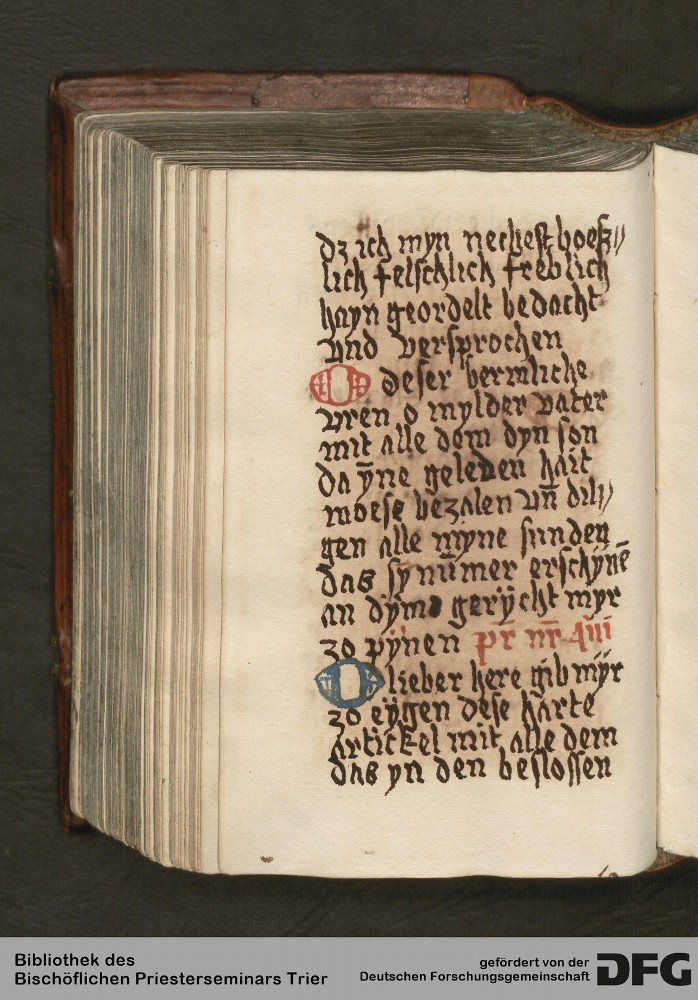 dz ich myn nechest boeß//
lich felschlich freblich
hayn geordelt bedacht
vnd versprochen
O deser bermliche
vren o mylder vater
mit alle dem dyn son
da ȳne geleden hait
moese bezalen vn̄ dil//
gen alle myne sunden
das sy num̄er erschÿnē
an dÿme gerÿcht myr
zo pÿnen pr̄ nr̄
O lieber here gib mÿr
zo eÿgen dese harte
artickel mit alle dem
das yn den beslossen
Bibliothek des
Bischöflichen Priesterseminars Trier
gefördert von der
Deutschen Forschungsgemeinschaft DFG